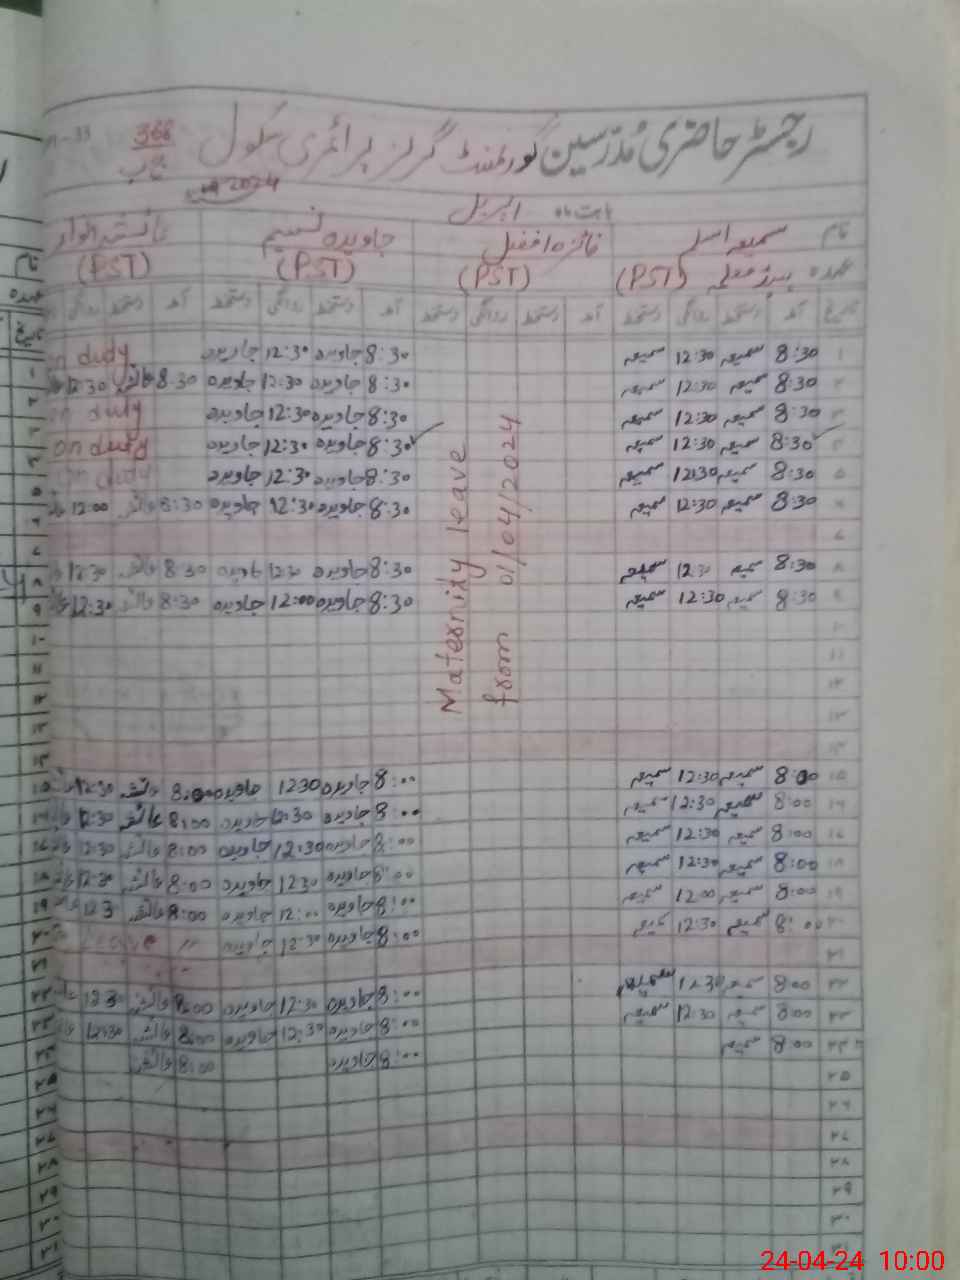 رجسٹر حاضری مدرسین گورنمنٹ گرلز پرائمری سکول 366
2024
بابت ماہ اپریل
نام سمیعہ اسلم جاویدہ نسیم
عہدہ (PST) (PST) (PST) (PST)
تاریخ آمد دستخط روانگی دستخط آمد دستخط روانگی دستخط آمد دستخط روانگی دستخط آمد دستخط روانگی
۱ 8:30 سمیعہ 12:30 سمیعہ 8:30 جاویدہ 12:30 جاویدہ on duty
۲ 8:30 سمیعہ 12:30 سمیعہ 8:30 جاویدہ 12:30 جاویدہ 8:30 عائشہ 12:30
۳ 8:30 سمیعہ 12:30 سمیعہ 8:30 جاویدہ 12:30 جاویدہ on duty
۴ 8:30 سمیعہ 12:30 سمیعہ 8:30 جاویدہ 12:30 جاویدہ on duty
۵ 8:30 سمیعہ 12:30 سمیعہ 8:30 جاویدہ 12:30 جاویدہ on duty
۶ 8:30 سمیعہ 12:30 سمیعہ 8:30 جاویدہ 12:30 جاویدہ 8:30 عائشہ 12:00
۷
۸ 8:30 سمیعہ 12:30 سمیعہ 8:30 جاویدہ 12:30 جاویدہ 8:30 عائشہ 12:30
۹ 8:30 سمیعہ 12:30 سمیعہ 8:30 جاویدہ 12:00 جاویدہ 8:30 عائشہ 12:30
Maternity leave
from 01/04/2024
۱۰
۱۱
۱۲
۱۳
۱۴
۱۵ 8:00 سمیعہ 12:30 سمیعہ 8:00 جاویدہ 1230 جاویدہ 8:00 عائشہ 12:30
۱۶ 8:00 سمیعہ 12:30 سمیعہ 8:00 جاویدہ 12:30 جاویدہ 8:00 عائشہ 12:30
۱۷ 8:00 سمیعہ 12:30 سمیعہ 8:00 جاویدہ 12:30 جاویدہ 8:00 عائشہ 12:30
۱۸ 8:00 سمیعہ 12:30 سمیعہ 8:00 جاویدہ 1230 جاویدہ 8:00 عائشہ 12:30
۱۹ 8:00 سمیعہ 12:00 سمیعہ 8:00 جاویدہ 12:00 جاویدہ 8:00 عائشہ 123
۲۰ 8:00 سمیعہ 12:30 سمیعہ 8:00 جاویدہ 12:30 جاویدہ
۲۱
۲۲ 8:00 سمیعہ 12:30 سمیعہ 8:00 جاویدہ 12:30 جاویدہ 8:00 عائشہ 1230
۲۳ 8:00 سمیعہ 12:30 سمیعہ 8:00 جاویدہ 12:30 جاویدہ 8:00 عائشہ 12:30
۲۴ 8:00 سمیعہ 8:00 جاویدہ 8:00 عائشہ
۲۵
۲۶
۲۷
۲۸
۲۹
۳۰
۳۱
24-04-24 10:00